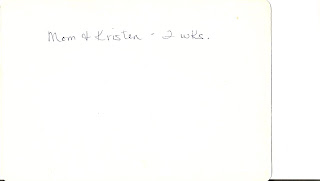 Mom & Kristen - 2 wks.